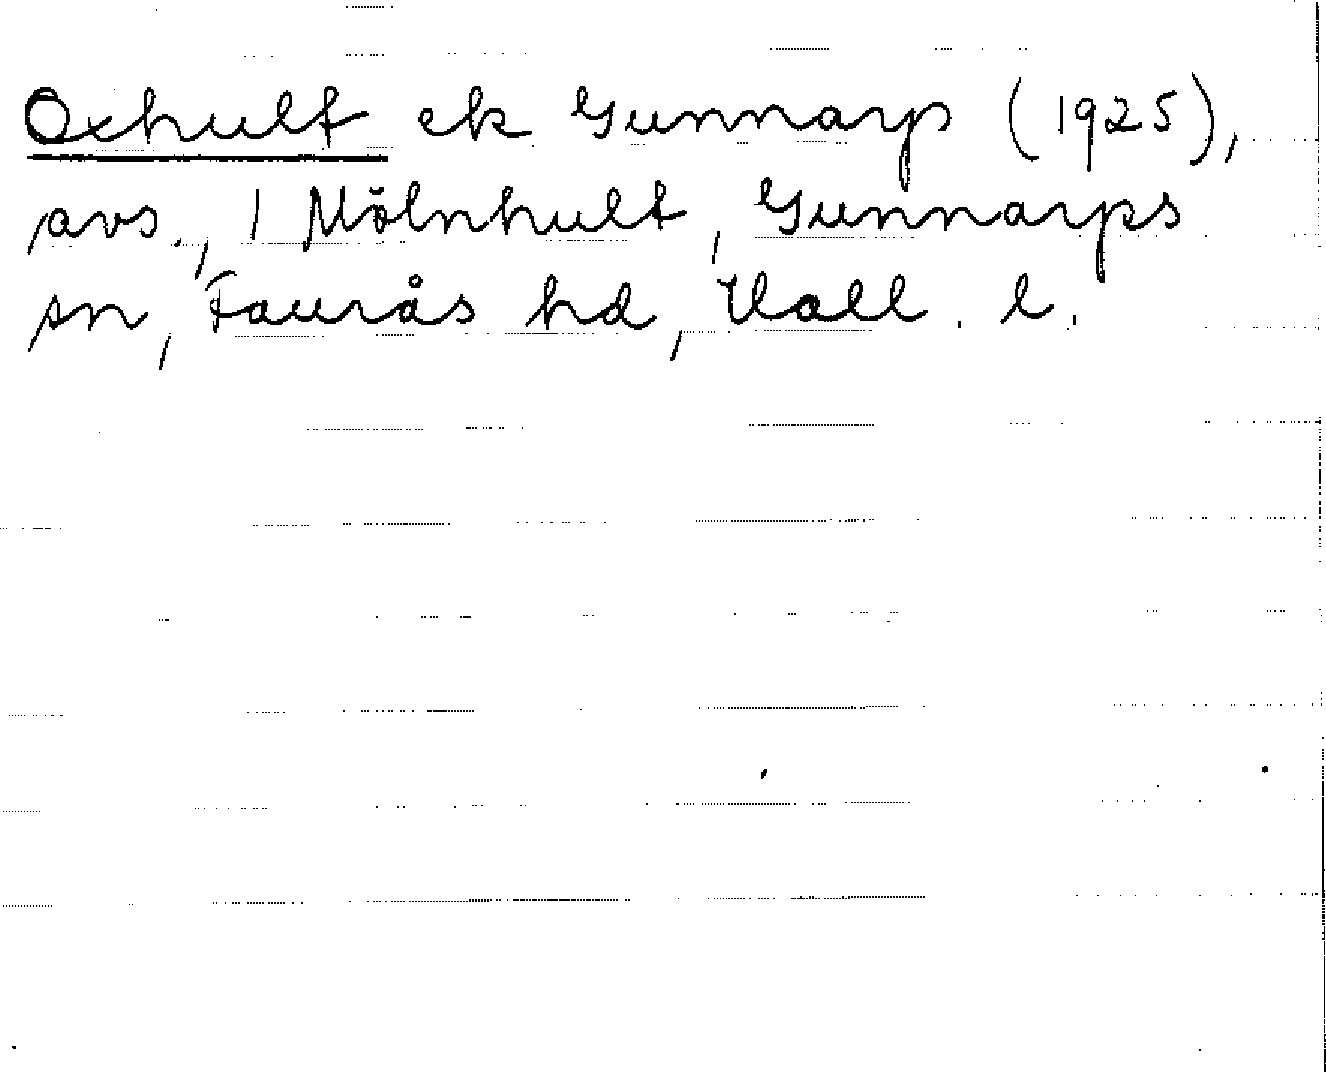 Oxhult ek Gunnarp (1925),
avs., 1 Mölnhult, Gunnarps
sn, Faurås hd, Hall. l.